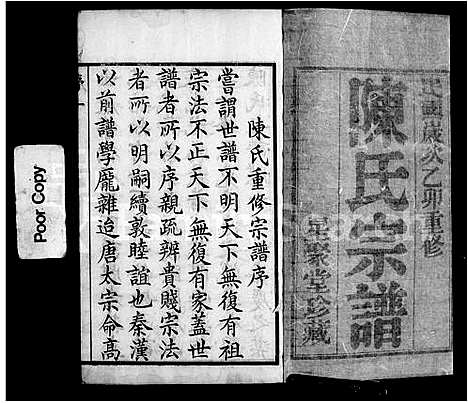 民國歲次乙卯重修
陳氏宗譜
星聚堂珍藏
陳氏重修宗譜序
嘗謂世譜不明天下無復有祖
宗法不正天下無復有家蓋世
譜者所以序親疏辨貴賤宗法
者所以明嗣續敦睦誼也秦漢
以前譜學龐雜迨唐太宗命高
Poor Copy